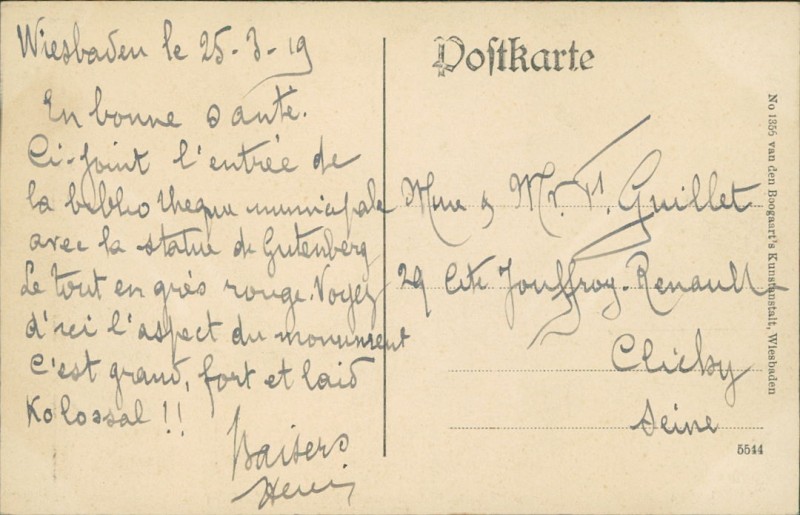 Wiesbaden le 25-3-19
En bonne santé.
Ci-joint l'entrée de
la bibliothèque municipale
avec la statue de Gutenberg
Le tout en grès rouge. Voyez
d'ici l'aspect du monument
C'est grand, fort et laid
Kolossal !!
Baisers
Henri
Postkarte
Mme & Mr. Guillet
29 Cité Jouffroy-Renault
Clichy
Seine
5544
No 1355 van den Boogaart's Kunstanstalt, Wiesbaden